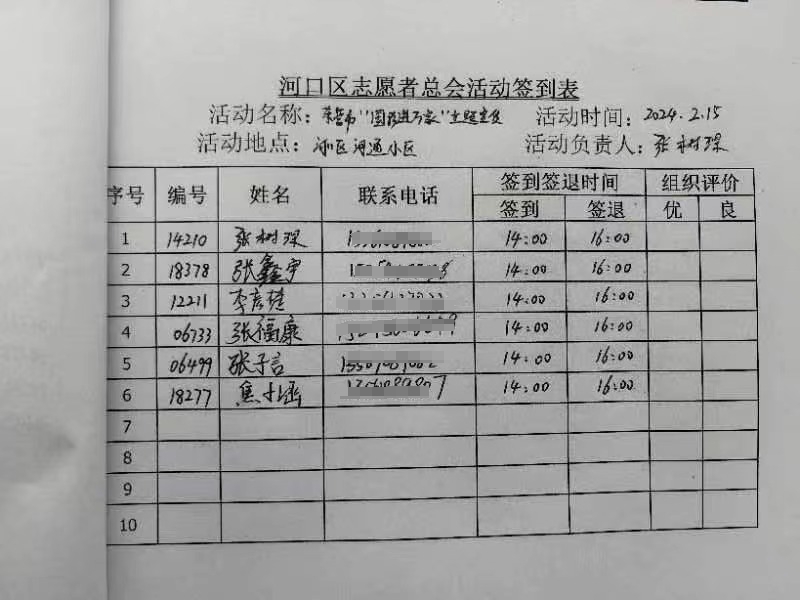 河口区志愿者总会活动签到表
活动名称： 活动时间：2024.2.15
活动地点：河口区河通小区 活动负责人：张树琛
序号 编号 姓名 联系电话 签到签退时间 组织评价
签到 签退 优 良
1 14210 张树琛 14:00 16:00
2 18378 张鑫宇 14:00 16:00
3 12211 李彦 14:00 16:00
4 06733 张福康 14:00 16:00
5 06499 张子言 14:00 16:00
6 18277 焦 涵 14:00 16:00
7
8
9
10